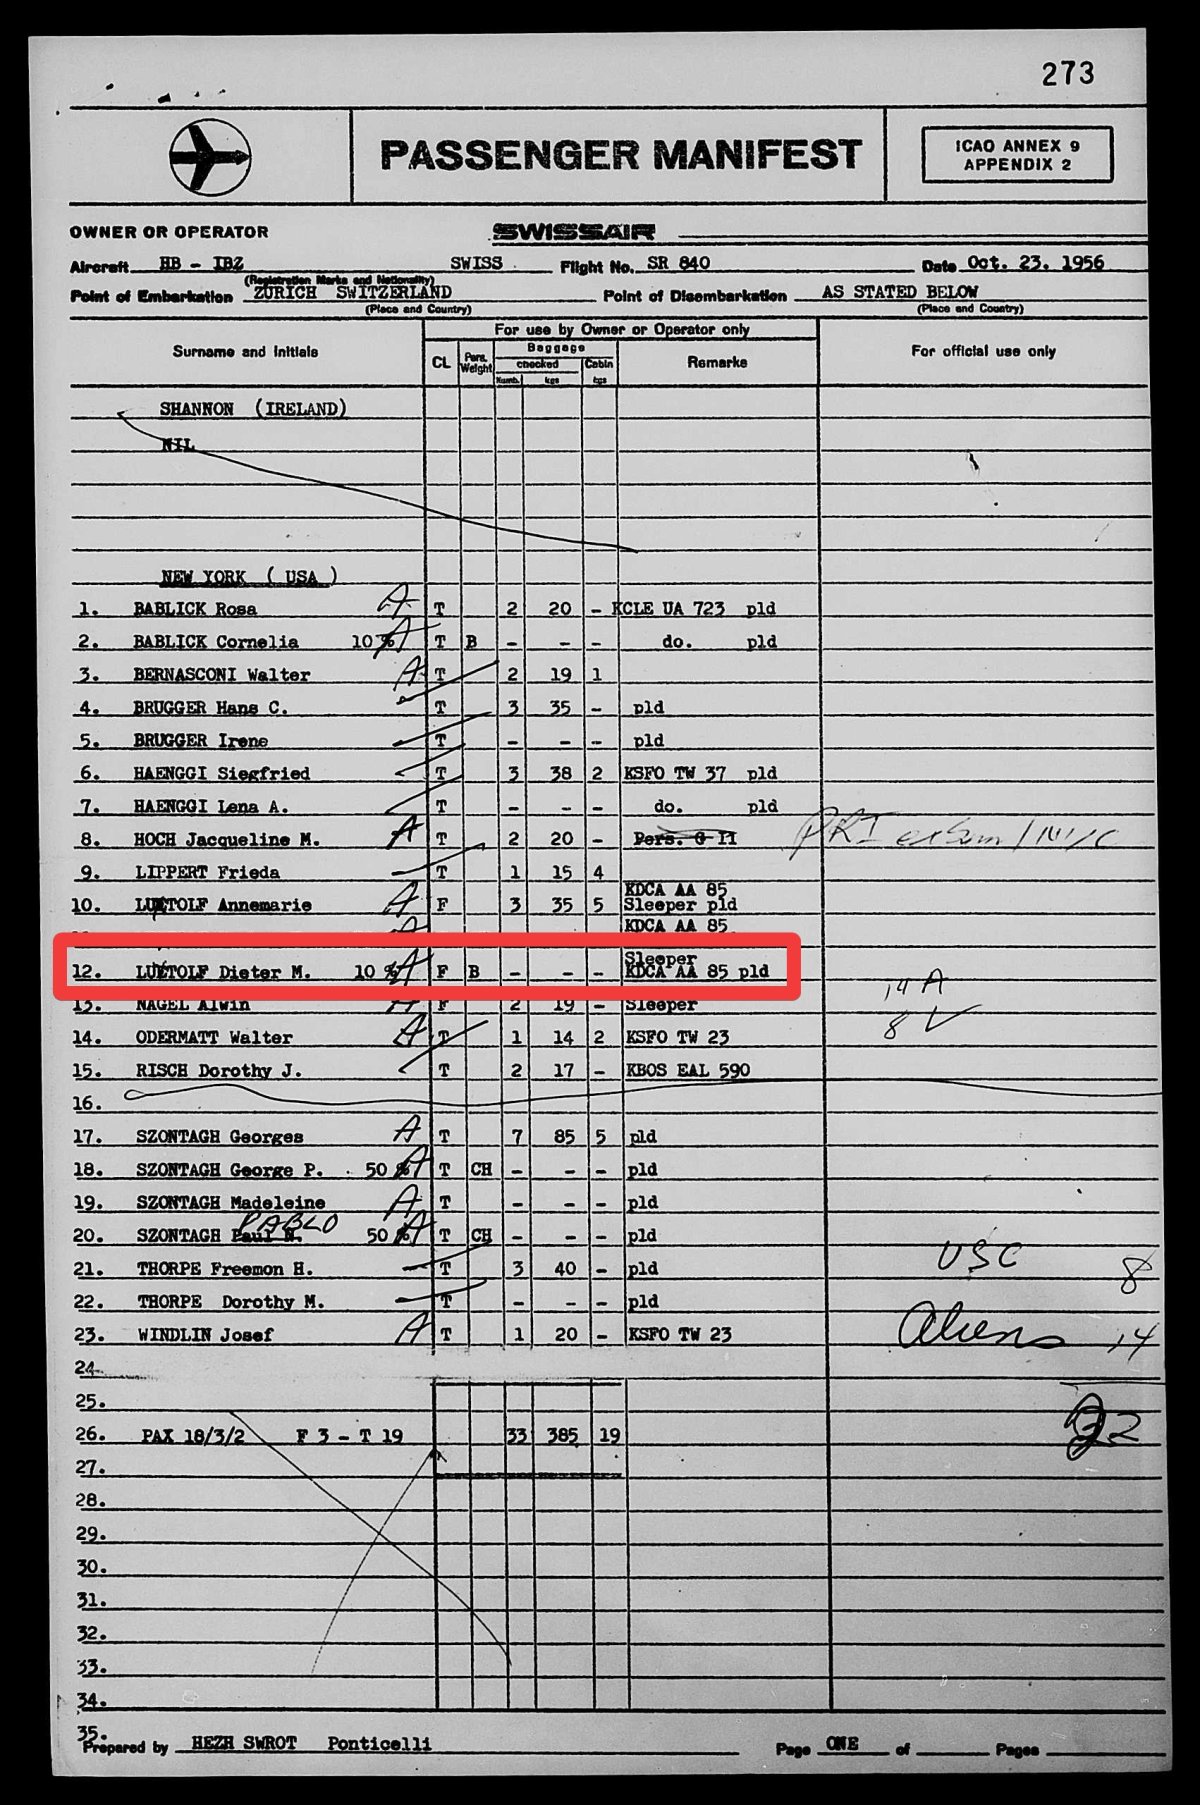 273
PASSENGER MANIFEST
ICAO ANNEX 9
APPENDIX 2
OWNER OR OPERATOR SWISSAIR
Aircraft HB - IBZ SWISS Flight No. SR 840 Date Oct. 23. 1956
(Registration Marks and Nationality)
Point of Embarkation ZURICH SWITZERLAND Point of Disembarkation AS STATED BELOW
(Place and Country) (Place and Country)
For use by Owner or Operator only
Surname and Initials CL Pers. Weight Baggage checked Numb. kgs Cabin kgs Remarks For official use only
SHANNON (IRELAND)
NIL
NEW YORK ( USA )
1. BABLICK Rosa A T 2 20 - KCLE UA 723 pld
2. BABLICK Cornelia 10 % A T B - - - do. pld
3. BERNASCONI Walter A T 2 19 1
4. BRUGGER Hans C. T 3 35 - pld
5. BRUGGER Irene T - - - pld
6. HAENGGI Siegfried T 3 38 2 KSFO TW 37 pld
7. HAENGGI Lena A. T - - - do. pld
8. HOCH Jacqueline M. A T 2 20 - Pers. G 11 PRI
9. LIPPERT Frieda T 1 15 4
KDCA AA 85
10. LUETOLF Annemarie A F 3 35 5 Sleeper pld
KDCA AA 85
Sleeper
12. LUETOLF Dieter M. 10 % A F B - - - KDCA AA 85 pld
14 A
13. NAGEL Alwin A F 2 19 - Sleeper
8 ✓
14. ODERMATT Walter A T 1 14 2 KSFO TW 23
15. RISCH Dorothy J. T 2 17 - KBOS EAL 590
16.
17. SZONTAGH Georges A T 7 85 5 pld
18. SZONTAGH George P. 50 % A T CH - - - pld
19. SZONTAGH Madeleine A T - - - pld
PABLO
20. SZONTAGH Paul N. 50 % A T CH - - - pld
21. THORPE Freemon H. T 3 40 - pld USC 8
22. THORPE Dorothy M. T - - - pld
23. WINDLIN Josef A T 1 20 - KSFO TW 23 Aliens 14
24
25.
26. PAX 18/3/2 F 3 - T 19 33 385 19 22
27.
28.
29.
30.
31.
32.
33.
34.
35.
Prepared by HEZH SWROT Ponticelli Page ONE of Pages